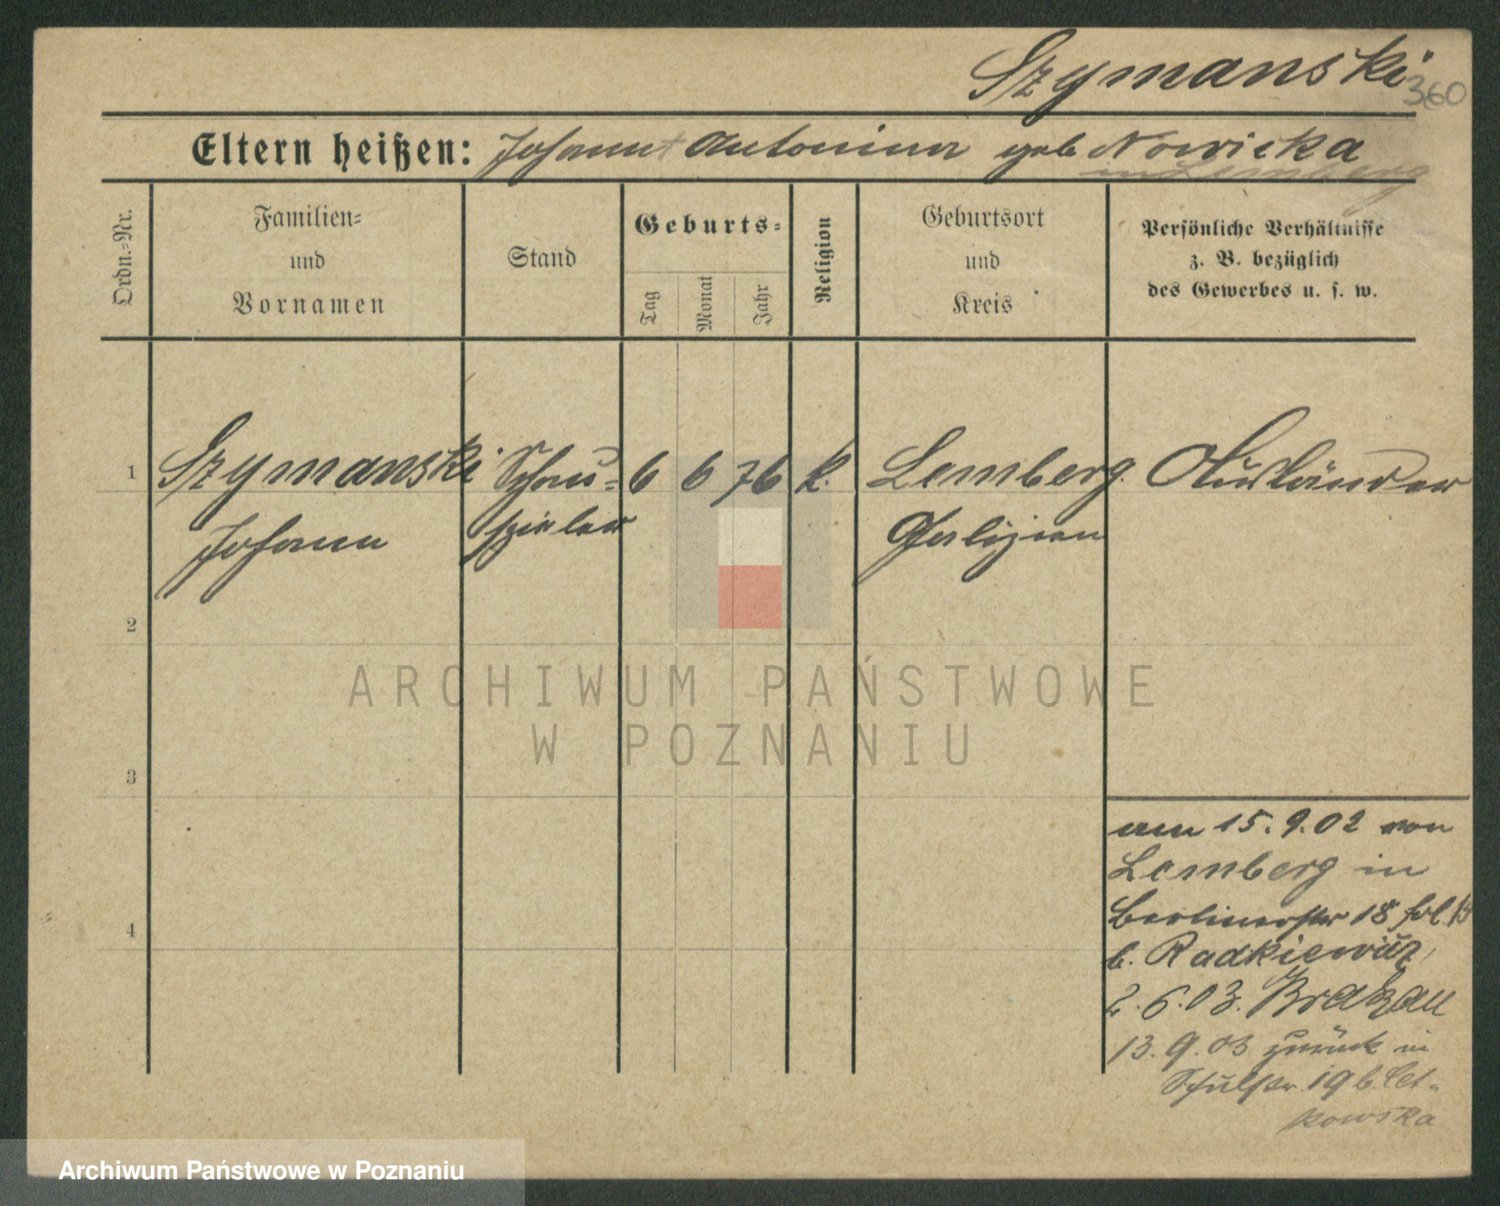 Szymanski
360
Eltern heißen: Johann + Antonina geb Nowicka
in Lemberg
Ordn.-Nr.
Familien-
und
Vornamen
Stand
Geburts-
Tag
Monat
Jahr
Religion
Geburtsort
und
Kreis
Persönliche Verhältnisse
z. B. bezüglich
des Gewerbes u. s. w.
1 Szymanski Schau- 6 6 76 k. Lemberg. Ausländer
Johann spieler Galizien
2
3
4
am 15.9.02 von
Lemberg in
Berlinerstr 18
b. Radkiewicz,
2.6.03. Krakau
13.9.03 zurück in
Schulstr. 19 b. Cet-
kowska
ARCHIWUM PAŃSTWOWE
W POZNANIU
Archiwum Państwowe w Poznaniu